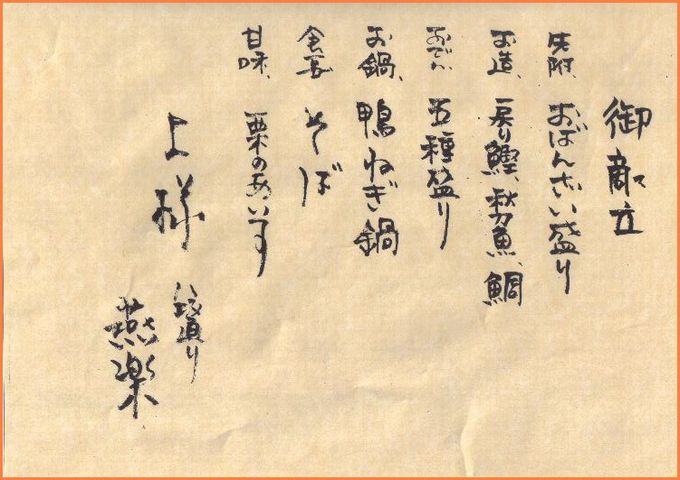 御献立
先附、おばんざい盛り
お造、戻り鰹、秋刀魚、鯛
おでん、五種盛り
お鍋、鴨ねぎ鍋
食事 そば
甘味、栗のあいす
上様
燕楽